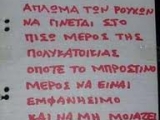 ΑΠΛΩΜΑ ΤΩΝ ΡΟΥΧΩΝ
ΝΑ ΓΙΝΕΤΑΙ ΣΤΟ
ΠΙΣΩ ΜΕΡΟΣ ΤΗΣ
ΠΟΛΥΚΑΤΟΙΚΙΑΣ
ΟΠΟΤΕ ΤΟ ΜΠΡΟΣΤΙΝΟ
ΜΕΡΟΣ ΝΑ ΕΙΝΑΙ
ΕΜΦΑΝΗΣΙΜΟ
ΚΑΙ ΝΑ ΜΗ ΜΟΙΑΖΕΙ